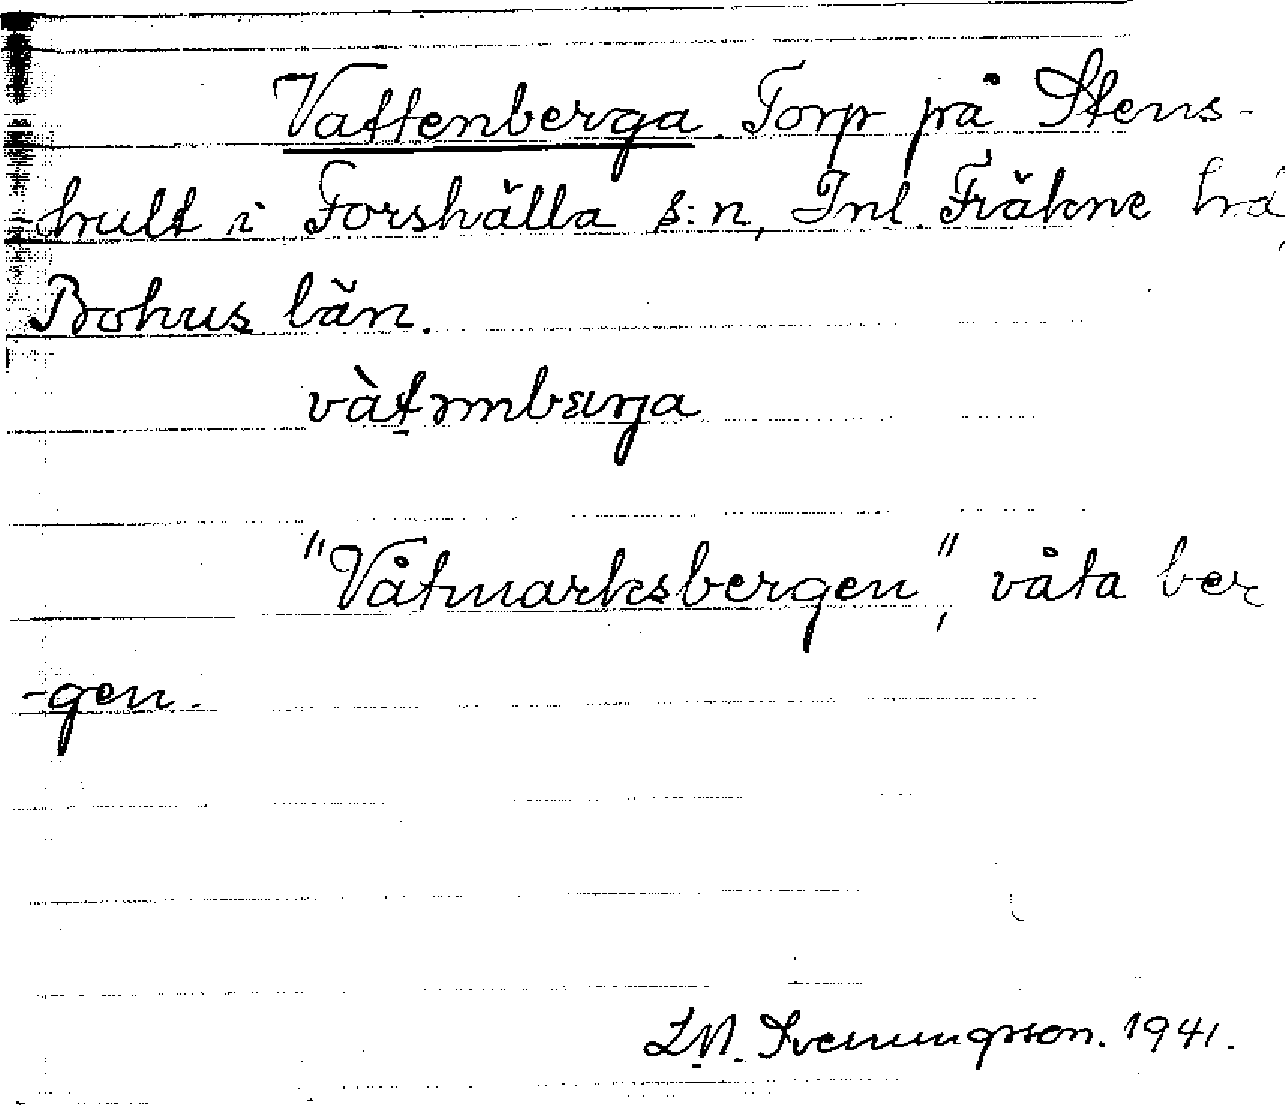 Vattenberga. Torp på Stens-
hult i Forshälla s:n, Inl. Fräkne hd,
Bohus län.
vàtmbærja
"Våtmarksbergen", våta ber
-gen.
Svenungsson. 1941.